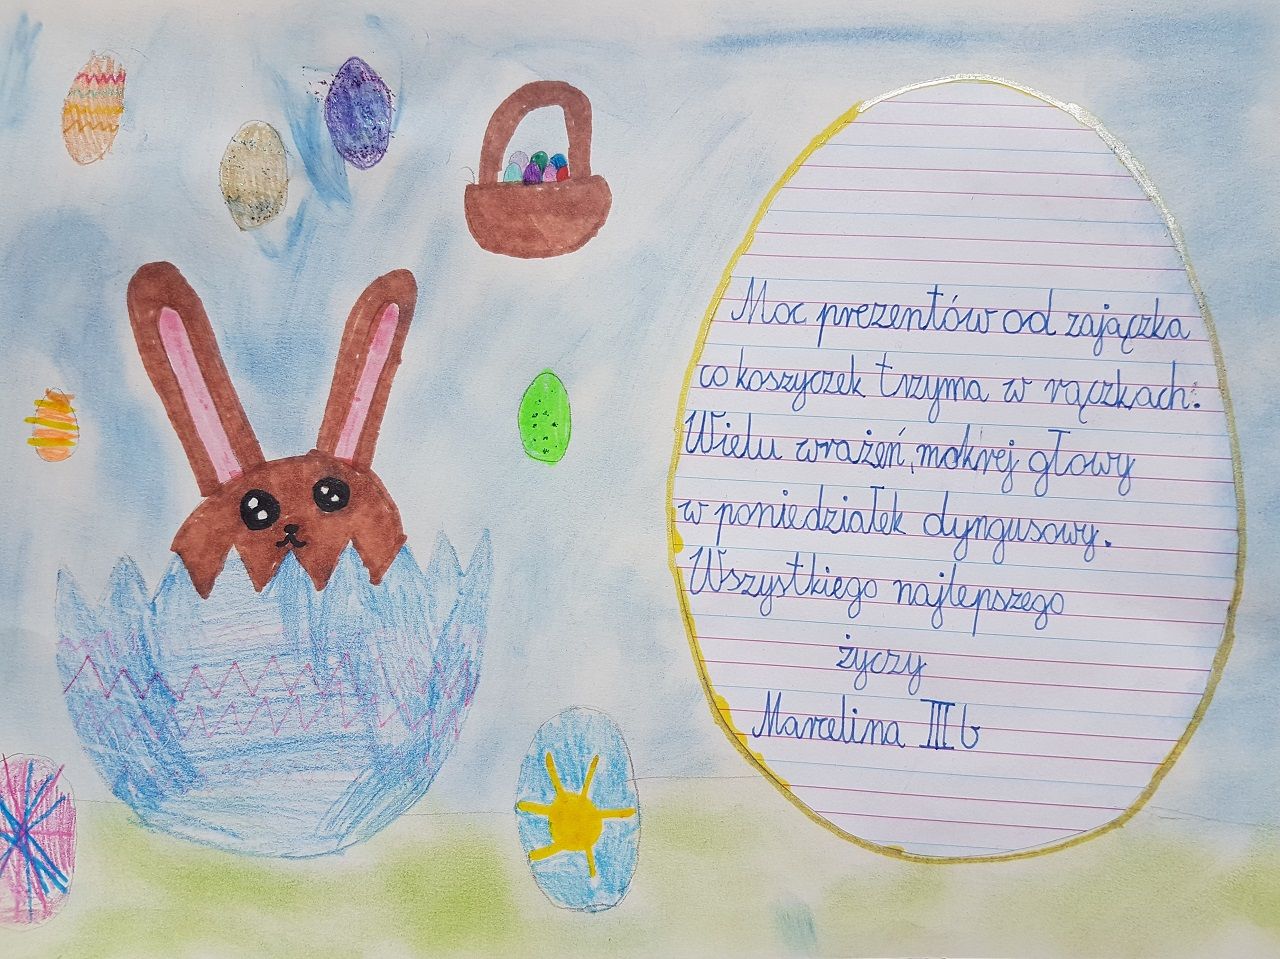 Moc prezentów od zajączka
co koszyczek trzyma w rączkach.
Wielu wrażeń, mokrej głowy
w poniedziałek dyngusowy.
Wszystkiego najlepszego
życzy
Marcelina III b